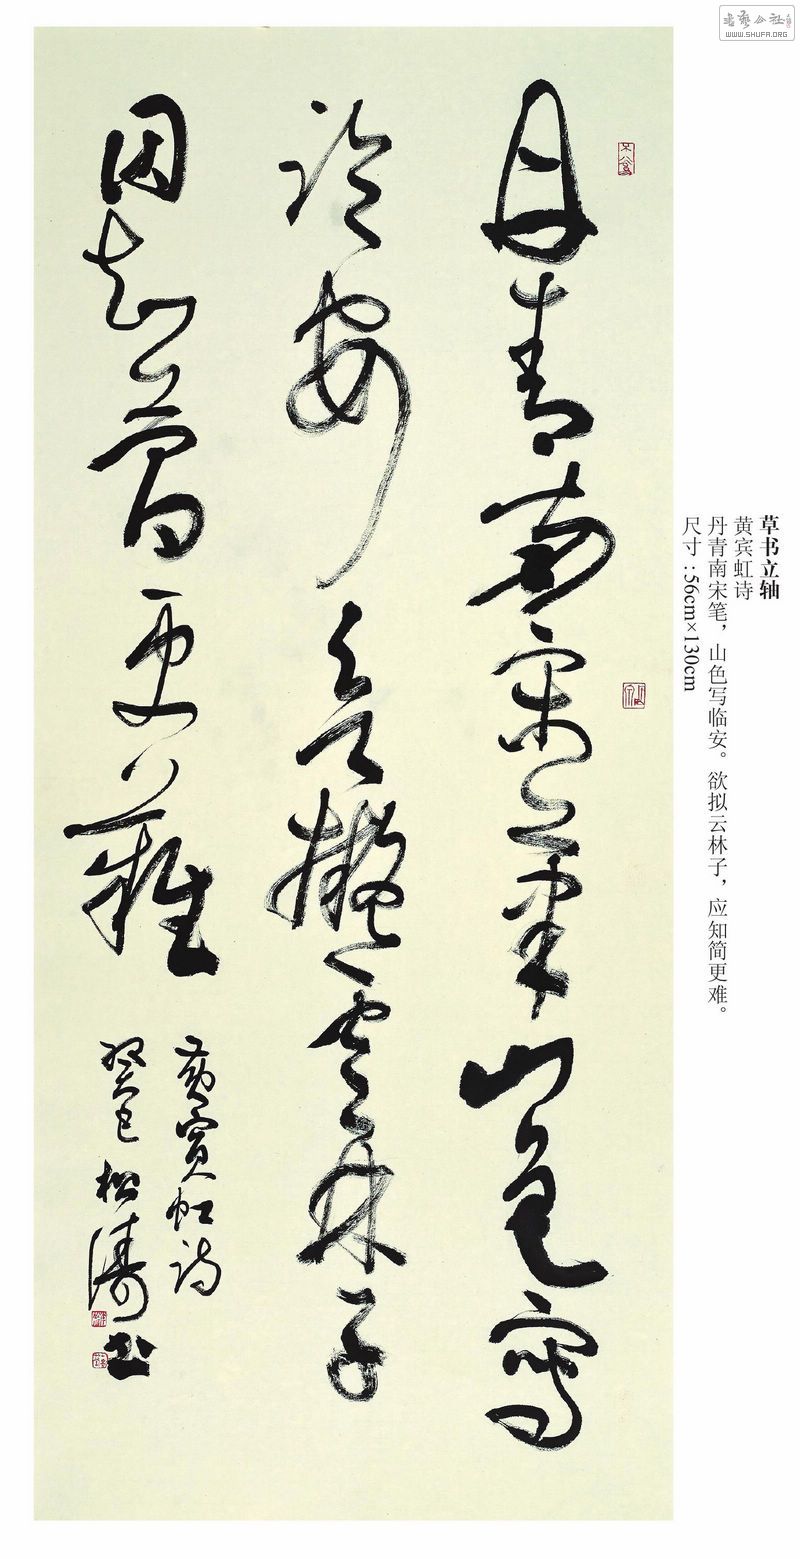 書藝公社
WWW.SHUFA.ORG
草书立轴
黄宾虹诗
丹青南宋笔，山色写临安。欲拟云林子，应知简更难。
尺寸：56cm×130cm
丹青南宋筆山色寫
臨安欲擬雲林子
因知簡更難
黄賓虹詩
癸巳松濤書